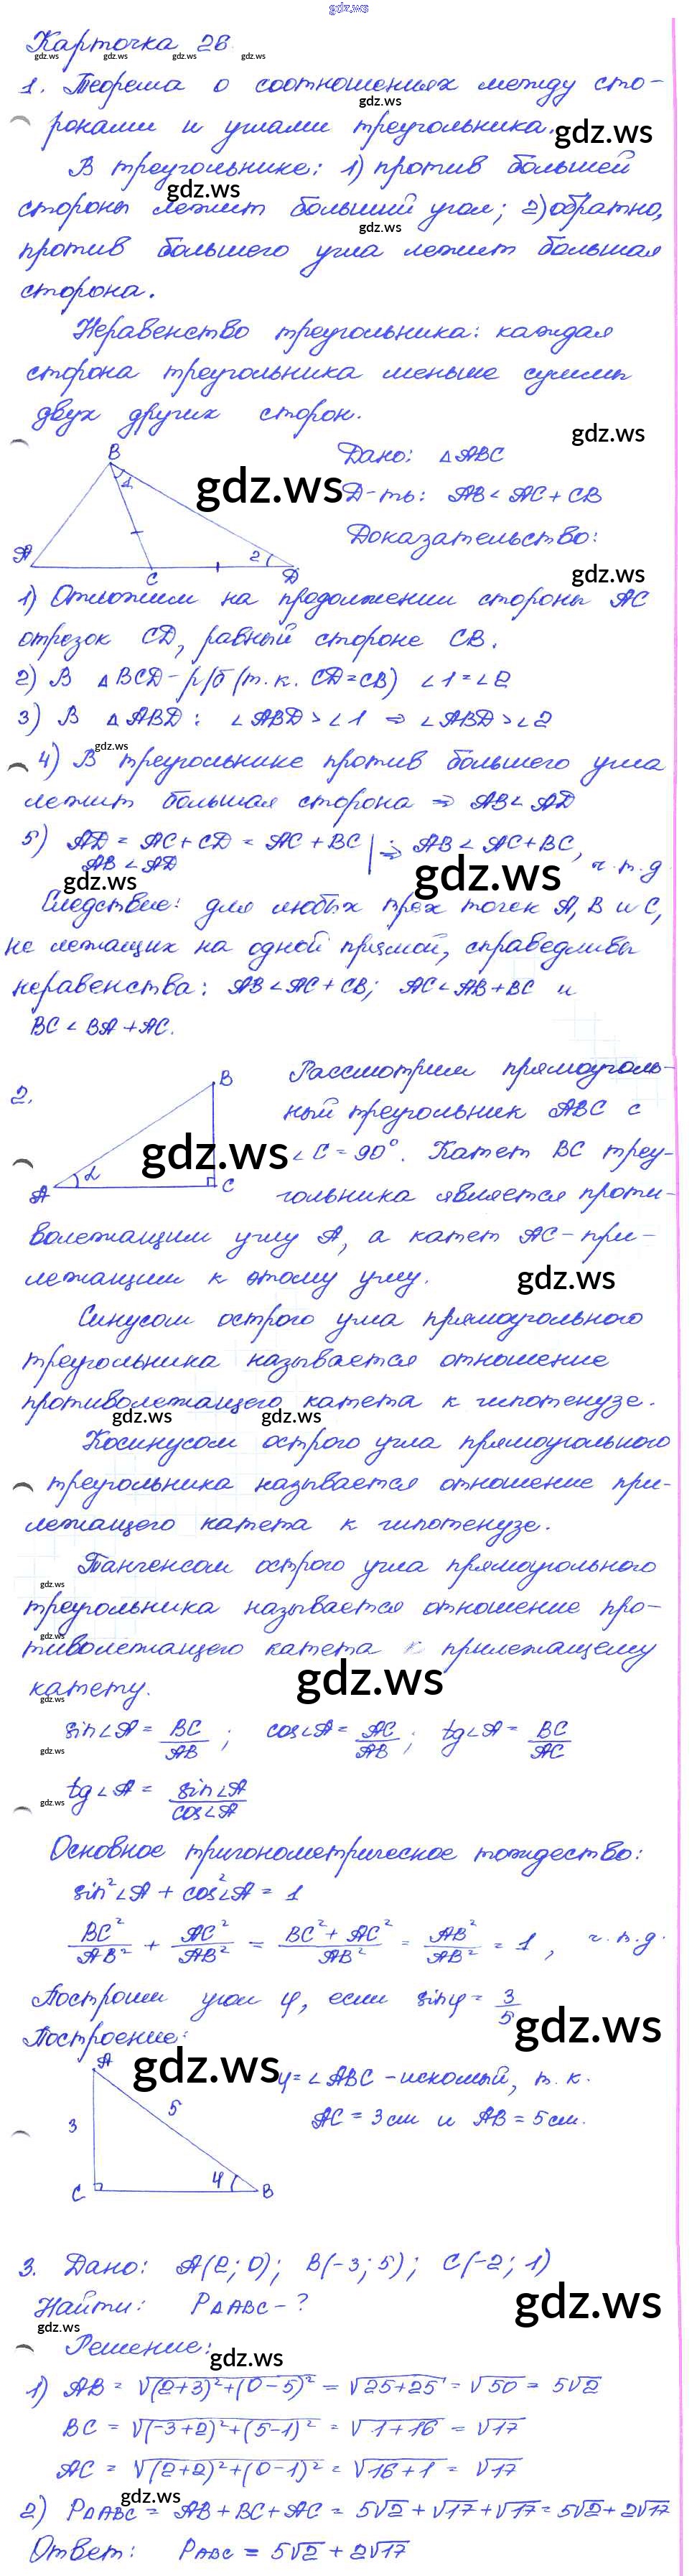 gdz.ws
Карточка 26.
gdz.ws gdz.ws gdz.ws gdz.ws
1. Теорема о соотношениях между сто-
gdz.ws
ронами и углами треугольника.
gdz.ws
В треугольнике: 1) против большей
gdz.ws
стороны лежит больший угол; 2) обратно,
gdz.ws
против большего угла лежит большая
сторона.
Неравенство треугольника: каждая
сторона треугольника меньше суммы
двух других сторон.
gdz.ws
B
Дано: △ABC
1
gdz.ws
Д-ть: AB < AC + CB
Доказательство:
A 2
C D
gdz.ws
1) Отложим на продолжении стороны AC
отрезок CD, равный стороне CB.
2) В △BCD - р/б (т.к. CD = CB) ∠1 = ∠2
3) В △ABD: ∠ABD > ∠1 ⇒ ∠ABD > ∠2
gdz.ws
4) В треугольнике против большего угла
лежит большая сторона ⇒ AB < AD
5) AD = AC + CD = AC + BC | ⇒ AB < AC + BC,
AB < AD ч.т.д
gdz.ws gdz.ws
Следствие: для любых трех точек A, B и C,
не лежащих на одной прямой, справедливы
неравенства: AB < AC + CB; AC < AB + BC и
BC < BA + AC.
2.
B
Рассмотрим прямоуголь-
ный треугольник ABC с
gdz.ws
∠C = 90°. Катет BC треу-
A α C
гольника является проти-
волежащим углу A, а катет AC - при-
лежащим к этому углу.
gdz.ws
Синусом острого угла прямоугольного
треугольника называется отношение
противолежащего катета к гипотенузе.
gdz.ws gdz.ws
Косинусом острого угла прямоугольного
треугольника называется отношение при-
лежащего катета к гипотенузе.
Тангенсом острого угла прямоугольного
gdz.ws
треугольника называется отношение про-
gdz.ws
тиволежащего катета к прилежащему
gdz.ws
катету.
gdz.ws
sin∠A = BC/AB; cos∠A = AC/AB; tg∠A = BC/AC
gdz.ws
tg∠A = sin∠A/cos∠A
gdz.ws
Основное тригонометрическое тождество:
sin²∠A + cos²∠A = 1
BC²/AB² + AC²/AB² = (BC² + AC²)/AB² = AB²/AB² = 1, ч.т.д.
Построим угол φ, если sinφ = 3/5
gdz.ws
Построение:
A
gdz.ws
φ = ∠ABC - искомый, т.к.
5
AC = 3 см и AB = 5 см.
3
φ
C B
3. Дано: A(2; 0); B(-3; 5); C(-2; 1)
Найти: P△ABC - ?
gdz.ws
gdz.ws
Решение:
gdz.ws
1) AB = √(2+3)²+(0-5)² = √25+25 = √50 = 5√2
BC = √(-3+2)²+(5-1)² = √1+16 = √17
AC = √(2+2)²+(0-1)² = √16+1 = √17
gdz.ws
2) P△ABC = AB + BC + AC = 5√2 + √17 + √17 = 5√2 + 2√17
Ответ: PABC = 5√2 + 2√17